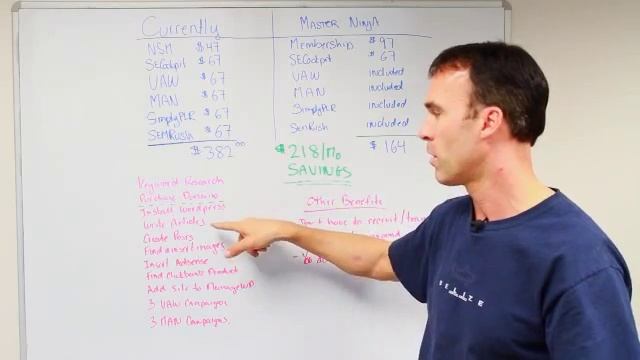 Currently
NSM $47
SECockpit $67
UAW $67
MAN $67
SimplyPLR $67
SEMRush $67
$382.00
Master Ninja
Membership $97
SECockpit $67
UAW included
MAN included
SimplyPLR included
SEMRush included
$164
$218/mo
SAVINGS
Keyword Research
Purchase Domains
Install Wordpress
Write Articles
Create Pages
Find & insert images
Insert Adsense
Find Clickbank Product
Add Site to ManageWP
3 UAW Campaigns
3 MAN Campaigns
Other Benefits
Don't have to recruit/